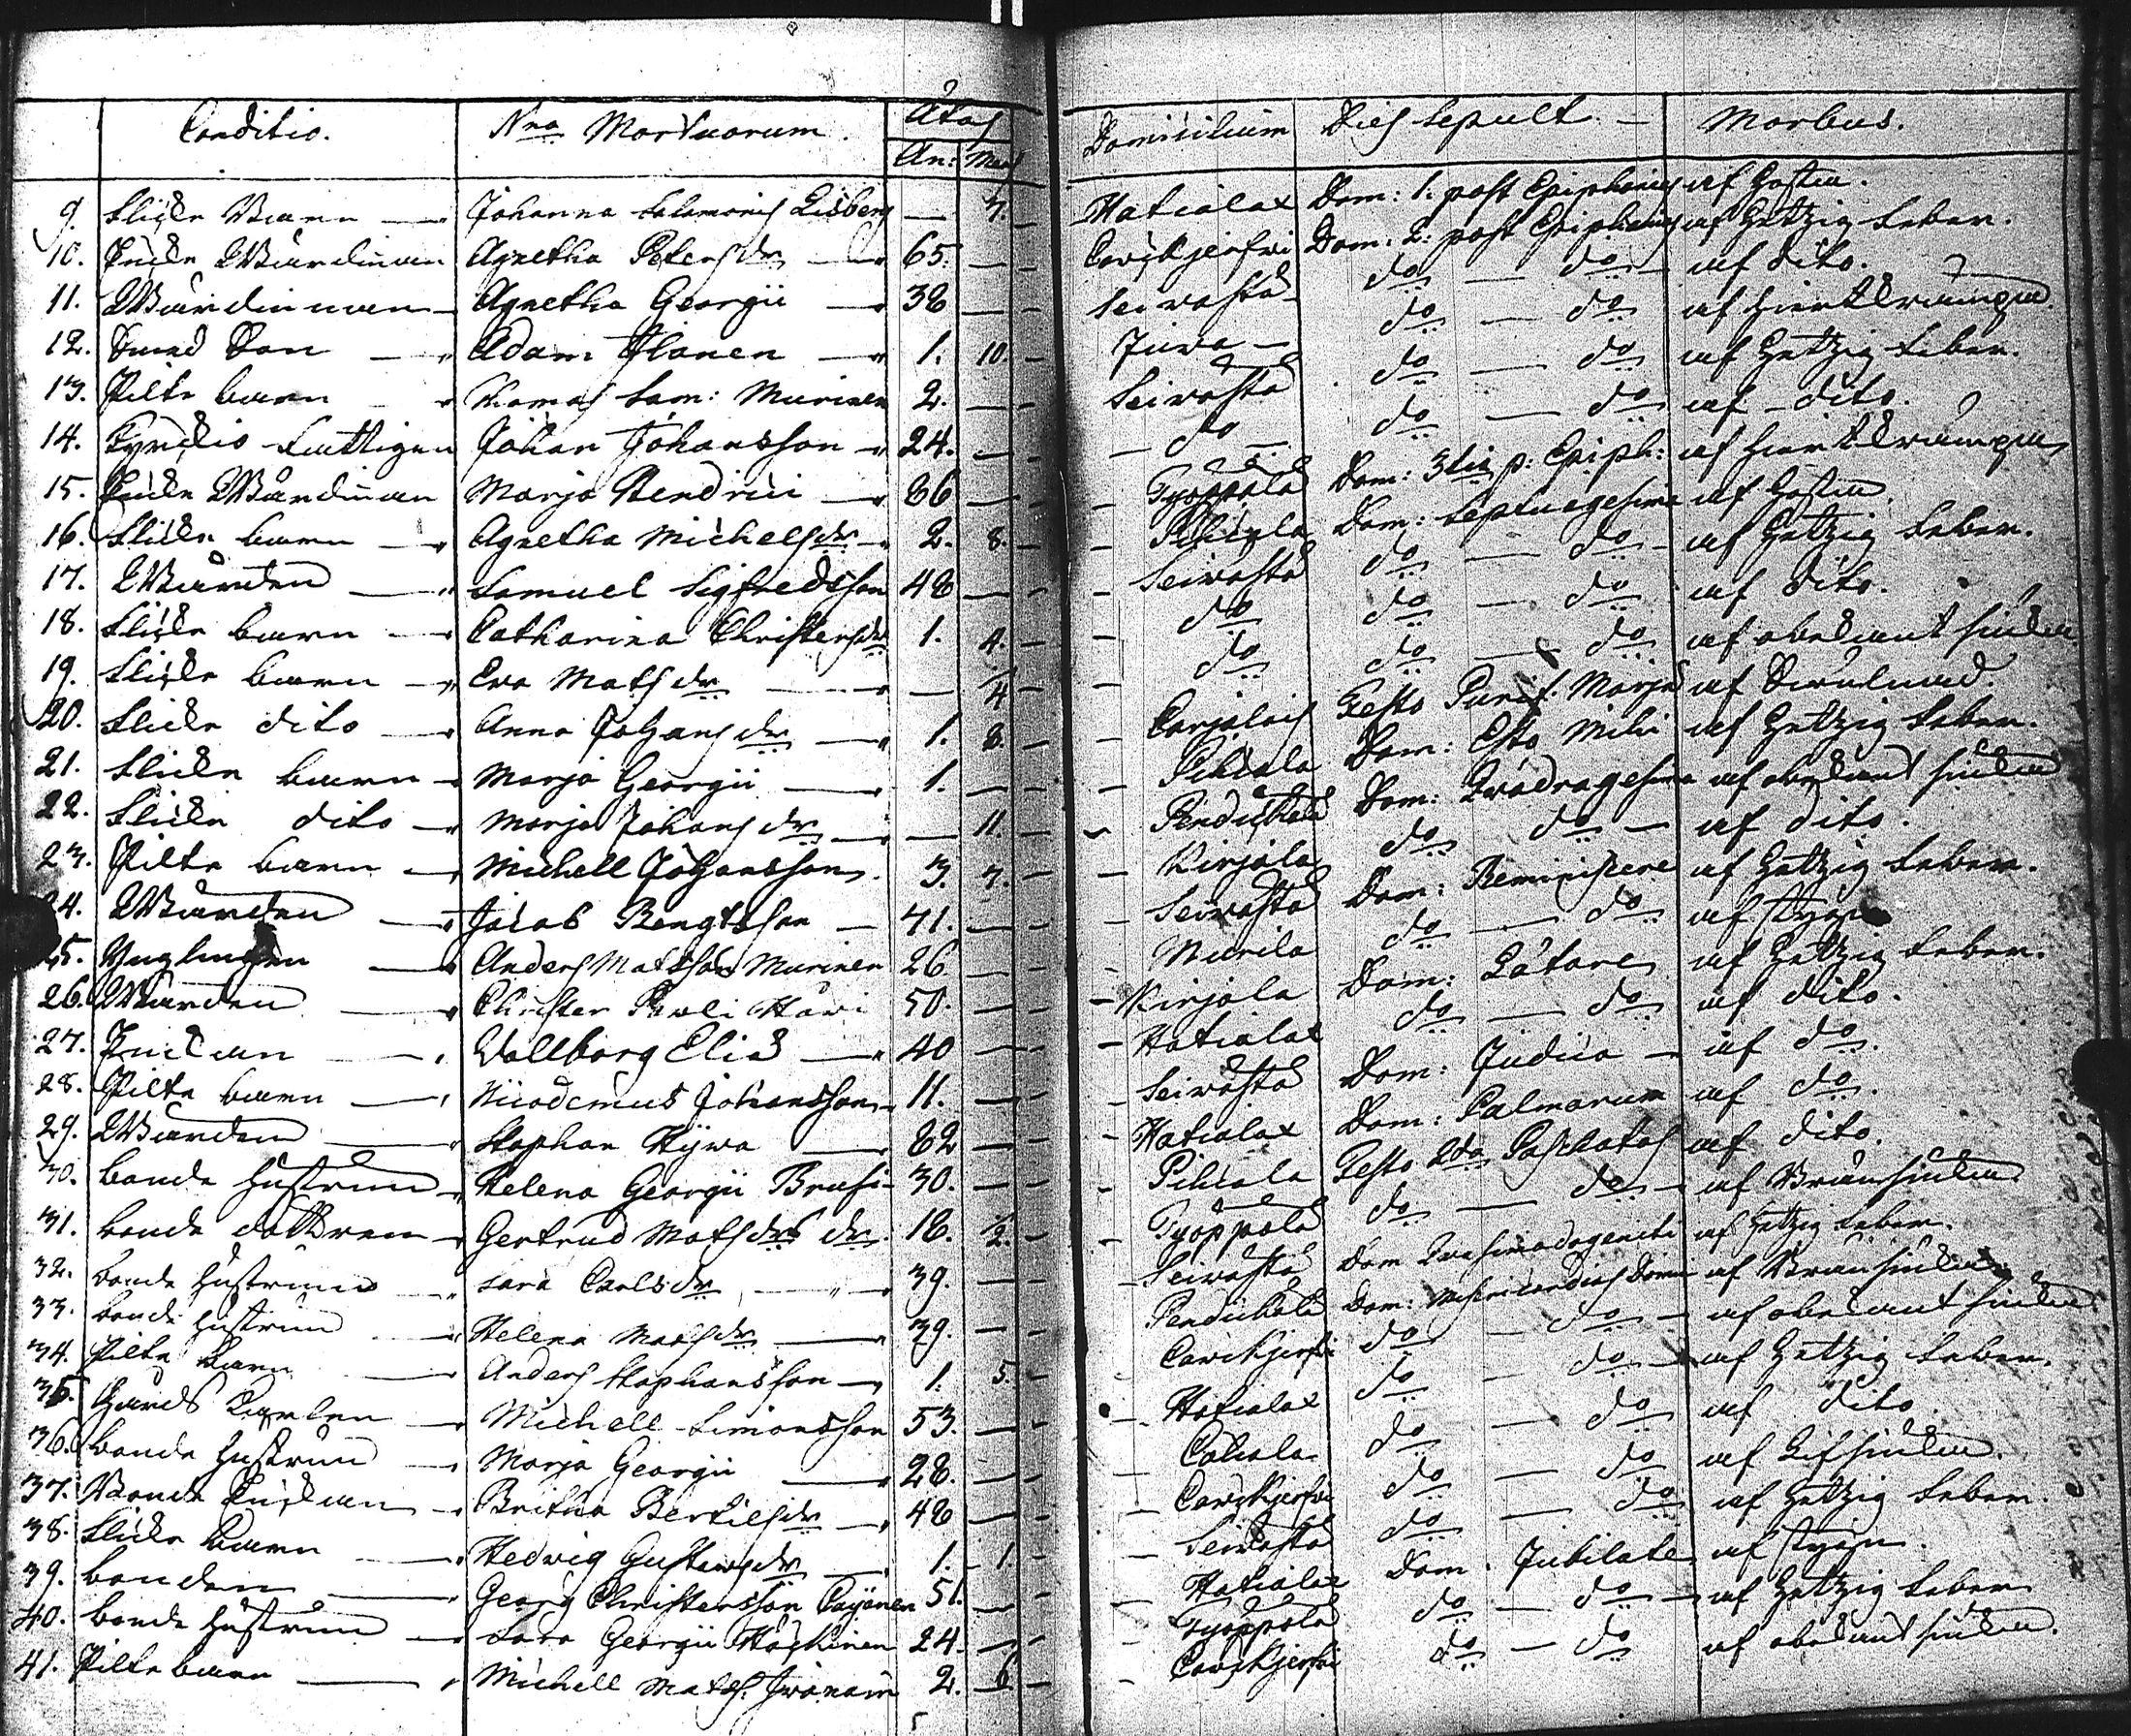 Conditio. Nra Mortuorum. Ätas Domicilium Dies Sepult. Morbus.
An: Mens
9. Flicke Barn — Johanna Salamonis Lisberg — 7. Hatialax Dom: 1. post Epiphanias af Hosta.
10. Encke Bondinnan Agnetha Petersdr — 65. — Carskjerfvi Dom: 2: post Epiphanias af Hetzig Feber.
11. Bondinnan — Agnetha Georgii — 38 — Seivastå do — do af dito.
12. Smed Son — Adam Ilanen — 1. 10. Juva — do — do af
13. Pilte barn — Thomas Sam: Murinen 2. — Seivastå do — do af Hetzig Feber.
14. Fattigen Johan Johansson — 24. — do — do — do af dito.
15. Encke Bondinnan Marja Hendrici — 86 — Tyoppölä Dom: 3tia p: Epiph: af
16. Flicke barn — Agnetha Michelsdr — 2. 8. Pihlola Dom: Septuagesima af Hosta.
17. Bonden — Samuel Sigfredsson 48 — Seivastå do — do af Hetzig Feber.
18. Flicke barn — Catharina Christersdr 1. 4. do do — do af dito.
19. Flicke barn — Eva Matsdr — 1/4 do do — do af obekant siuka
20. Flicke dito — Anna Johansdr — 1. 8. Carjalais Festo Purif. Marjæ af
21. Flicke barn — Marja Georgii — 1. — Pihlola Dom: Esto Mihi af Hetzig Feber.
22. Flicke dito — Marja Johansdr — 11. Pendikälä Dom: Quadragesima af obekant siuka
23. Pilte barn — Michell Johansson. 3. 7. Kirjola do do — af dito.
24. Bonden — Jacob Bengtsson — 71. — Seivastå Dom: Reminiscere af Hetzig Feber.
25. Ynglingen — Anders Matsson Murinen 26 — Murila do — do af styng
26. Bonden — Christer Pavli Hävi 50. — Kirjola Dom: Lätare af Hetzig Feber.
27. Enckan — Vallborg Elias — 40 — Hatialax do — do af dito.
28. Pilte barn — Nicodemus Johansson 11. — Seivastå Dom: Judica — af do.
29. Bonden — Staphan Hyvä — 82 — Hatialax Dom: Palmarum af do.
30. bonde Hustrun Helena Georgii Brusi- 30. — Pihlola Festo 2do Paschatos af dito.
31. bonde dottren — Gertrud Matsdr dr. 18. 1/2. Tyoppölä do — do — af Bränsiuka
32. bonde Hustrun — Sara Carlsdr — 39. — Seivastå Dom Quasimodogeniti af Hetzig Feber.
33. bonde Hustrun — Helena Matsdr — 39. — Pendikälä Dom: Misericordias Domini af Bränsiuka
34. Pilte Barn — Anders Staphansson — 1. 5. Carskjerfvi do — do — af obekant siuka
35. Gårds Karlen — Michell Simonsson 53. — Hatialax do — do — af Hetzig Feber.
36. bonde Hustrun — Marja Georgii — 28. — do — do af dito.
37. Bonde Enckan — Britha Bertilsdr — 48 — Carskjerfvi do — do af
38. Flicke Barn — Hedvig Gustavsdr — 1. 1. Seivastå do — do af Hetzig Feber.
39. bonden — Georg Christersson 51. — Hatialax Dom. Jubilate af styng.
40. bonde Hustrun — Sara Georgii Häskinen 24. — Tyoppölä do — do — af Hetzig Feber
41. Pilte barn — Michell Mats. Ivanain 2. 6 Carskjerfvi do — do af obekant siuka.